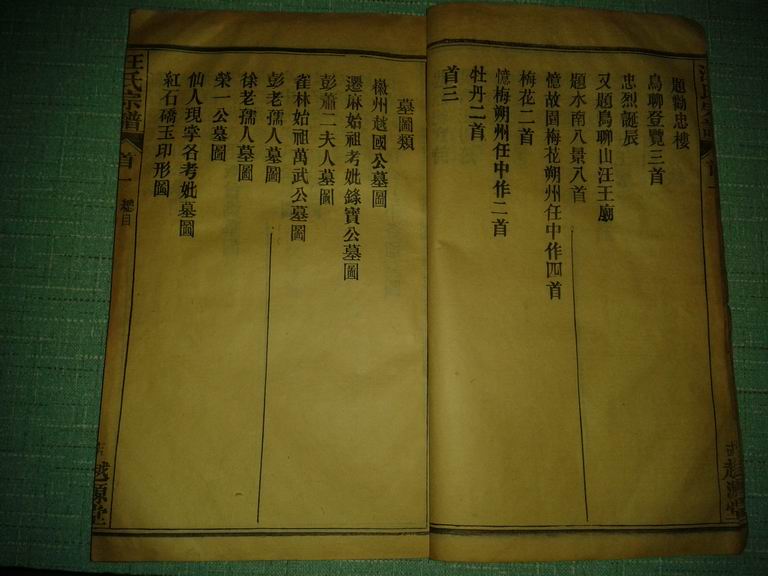 題勸忠樓
烏聊登覽三首
忠烈誕辰
又題烏聊山汪王廟
題水南八景八首
憶故園梅花朔州任中作四首
梅花二首
憶梅朔州任中作二首
牡丹二首
首三
墓圖類
徽州越國公墓圖
遷麻始祖考妣錄寶公墓圖
彭蕭二夫人墓圖
雀林始祖萬武公墓圖
彭老孺人墓圖
徐老孺人墓圖
榮一公墓圖
仙人現掌各考妣墓圖
紅石礄玉印形圖
汪氏宗譜
首一
總目
越源堂